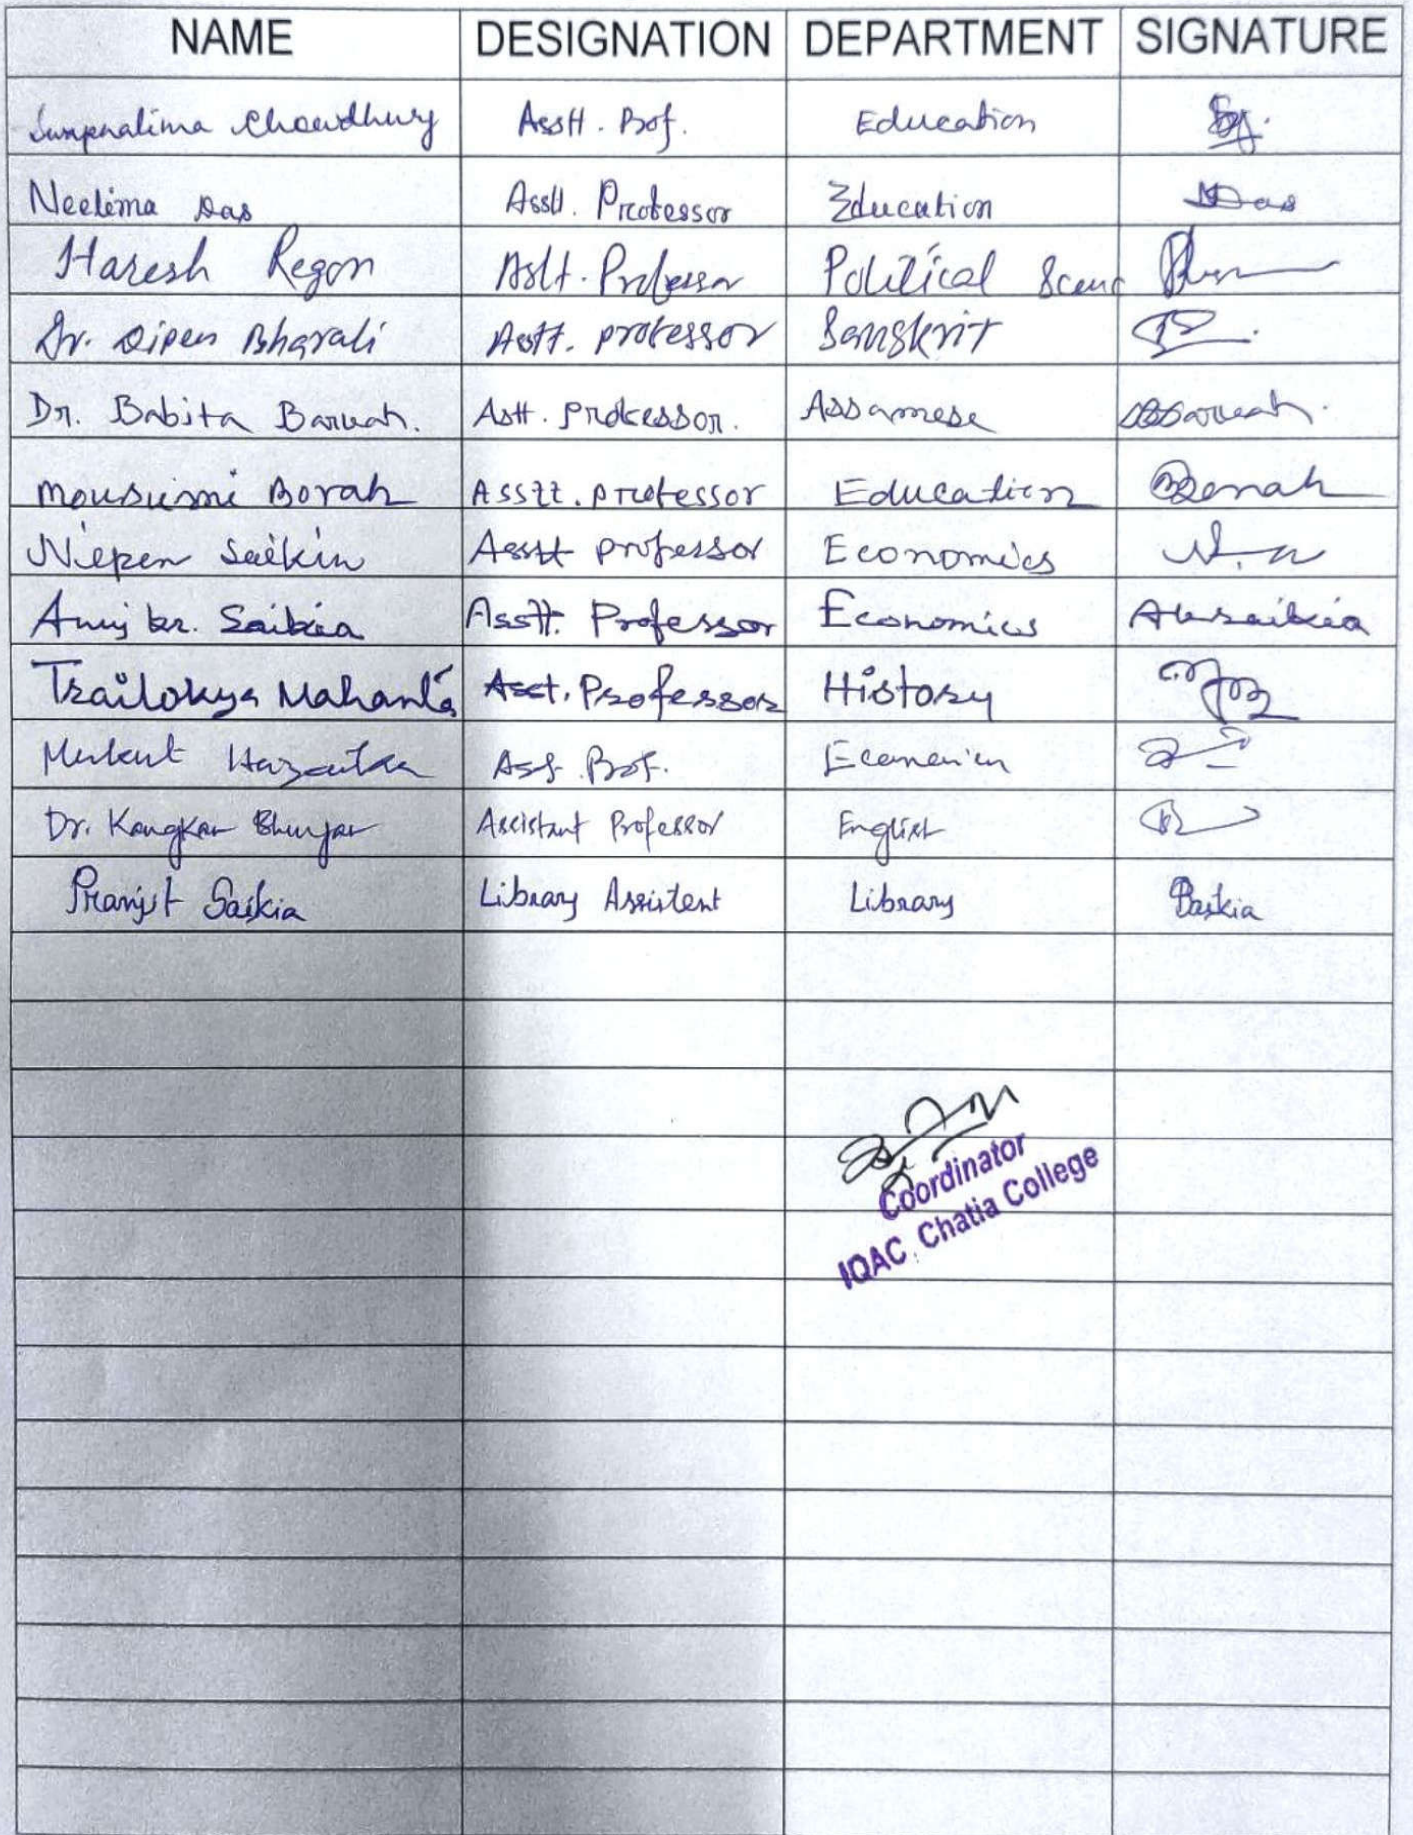 NAME DESIGNATION DEPARTMENT SIGNATURE
Chowdhury Asstt. Prof. Education
Neelima Das Asstt. Professor Education NDas
Haresh Regon Asstt. Professor Political
Dr. Dipen Bharali Astt. professor Sangkrit
Dr. Babita Baruah. Astt. professor. Assamese
Mousumi Borah Asstt. professor Education
Nepen Saikia Asstt professor Economics
Anuj kr. Saikia Asstt. Professor Economics Aksaikia
Trailokya Mahanta Asst. Professor History
Mukut Hazarika Ass. Prof.
Dr. Kangkan Bhuyan Assistant Professor English
Pranjit Saikia Library Assistent Library PSaikia
Coordinator
IQAC, Chatia College